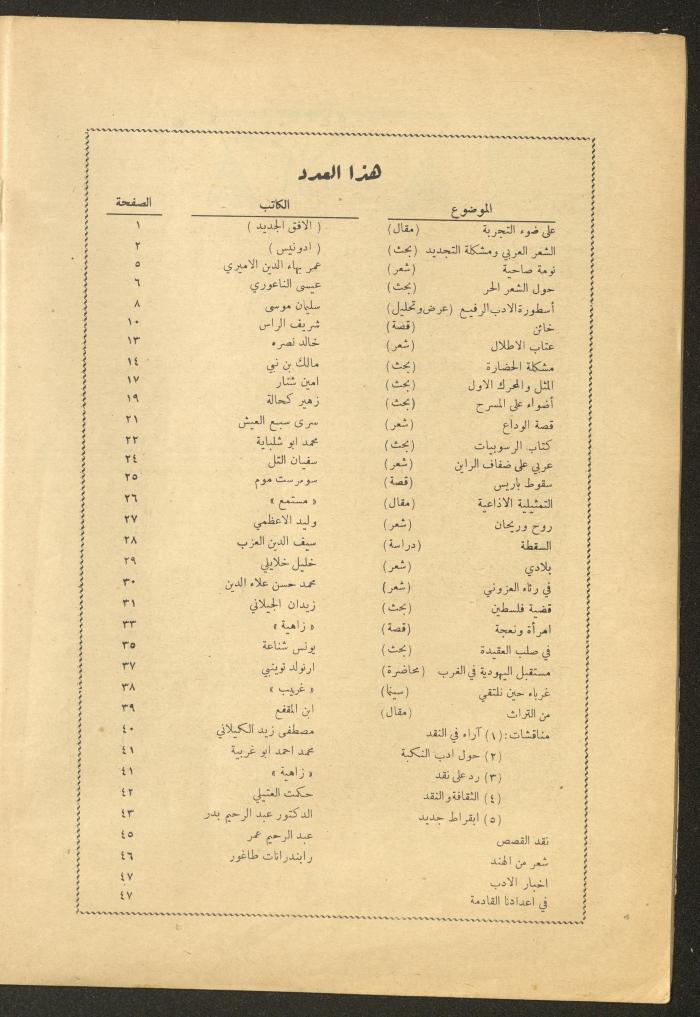 هذا العدد
الموضوع الكاتب الصفحة
على ضوء التجربة (مقال) ( الافق الجديد ) ١
الشعر العربي ومشكلة التجديد (بحث) ( ادونيس ) ٢
نومة صاحية (شعر) عمر بهاء الدين الاميري ٥
حول الشعر الحر (بحث) عيسى الناعوري ٦
أسطورة الادب الرفيع (عرض وتحليل) سليمان موسى ٨
خائن (قصة) شريف الراس ١٠
عتاب الاطلال (شعر) خالد نصره ١٣
مشكلة الحضارة (بحث) مالك بن نبي ١٤
المثل والمحرك الاول (بحث) امين شنار ١٧
أضواء على المسرح (بحث) زهير كحالة ١٩
قصة الوداع (شعر) سرى سبع العيش ٢١
كتاب الرسوبيات (بحث) محمد ابو شلباية ٢٢
عربي على ضفاف الراين (شعر) سفيان التل ٢٤
سقوط باريس (قصة) سومرست موم ٢٥
التمثيلية الاذاعية (مقال) « مستمع » ٢٦
روح وريحان (شعر) وليد الاعظمي ٢٧
السقطة (دراسة) سيف الدين العزب ٢٨
بلادي (شعر) خليل خلايلي ٢٩
في رثاء العزوني (شعر) محمد حسن علاء الدين ٣٠
قضية فلسطين (بحث) زيدان الجيلاني ٣١
امرأة ونعجة (قصة) « زاهية » ٣٣
في صلب العقيدة (بحث) يونس شناعة ٣٥
مستقبل اليهودية في الغرب (محاضرة) ارنولد توينبي ٣٧
غرباء حين نلتقي (سينما) « غريب » ٣٨
من التراث (مقال) ابن المقفع ٣٩
مناقشات: (١) آراء في النقد مصطفى زيد الكيلاني ٤٠
(٢) حول ادب النكبة محمد احمد ابو غربية ٤١
(٣) رد على نقد « زاهية » ٤١
(٤) الثقافة والنقد حكمت العتيلي ٤٢
(٥) ابقراط جديد الدكتور عبد الرحيم بدر ٤٣
نقد القصص عبد الرحيم عمر ٤٥
شعر من الهند رابندرانات طاغور ٤٦
اخبار الادب ٤٧
في اعدادنا القادمة ٤٧